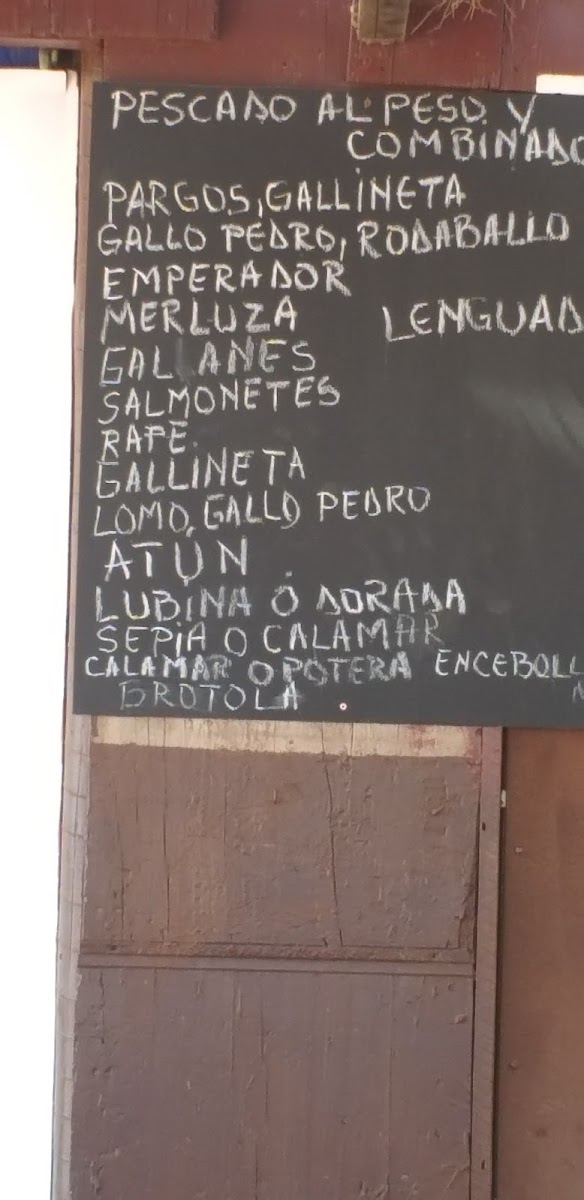 PESCADO AL PESO Y
COMBINADO
PARGOS, GALLINETA
GALLO PEDRO, RODABALLO
EMPERADOR
MERLUZA LENGUAD
GALLANES
SALMONETES
RAPE.
GALLINETA
LOMO, GALLO PEDRO
ATÚN
LUBINA O DORADA
SEPIA O CALAMAR
CALAMAR O POTERA ENCEBOLL
BROTOLA